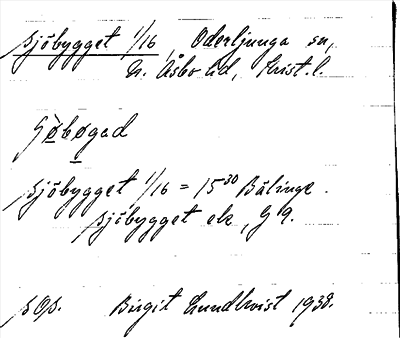 Sjöbygget 1/16, Oderljunga sn,
N. Åsbo hd, Krist. l.
Sjöbygget 1/16 = 15³⁰ Bälinge.
Sjöbygget ek, G 9.
s Os. Birgit Lundkvist 1938.